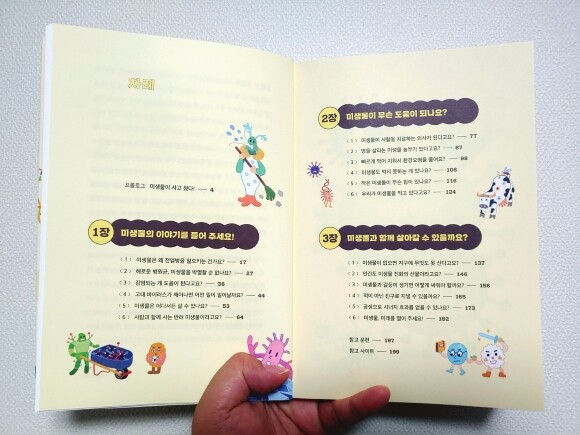 차례
프롤로그 미생물이 사고 쳤다! — 4
1장 미생물의 이야기를 들어 주세요!
(1) 미생물은 왜 전염병을 일으키는 건가요? — 17
(2) 해로운 병원균, 미생물을 박멸할 순 없나요? — 27
(3) 감염되는 게 도움이 된다고요? — 36
(4) 고대 바이러스가 깨어나면 어떤 일이 일어날까요? — 44
(5) 미생물은 어디서든 살 수 있나요? — 53
(6) 사람과 함께 사는 반려 미생물이라고요? — 64
2장 미생물이 무슨 도움이 되나요?
(1) 미생물이 사람을 치료하는 의사가 된다고요! — 77
(2) 땅을 살리는 미생물 농부가 있다고요? — 87
(3) 빠르게 먹어 치워서 환경오염을 줄여요? — 98
(4) 미생물도 먹지 못하는 게 있나요? — 108
(5) 작은 미생물이 무슨 힘이 있나요? — 116
(6) 우리가 미생물을 먹고 있다고요? — 124
3장 미생물과 함께 살아갈 수 있을까요?
(1) 미생물이 없으면 지구에 무엇도 못 산다고요! — 137
(2) 인간도 미생물 진화의 산물이라고요? — 146
(3) 미생물과 갈등이 생기면 어떻게 싸워야 할까요? — 156
(4) 적이 아닌 친구로 지낼 수 있을까요? — 165
(5) 공생으로 시너지 효과를 얻을 수 있나요? — 173
(6) 미생물, 미래를 열어 주세요! — 182
참고 문헌 — 197
참고 사이트 — 199